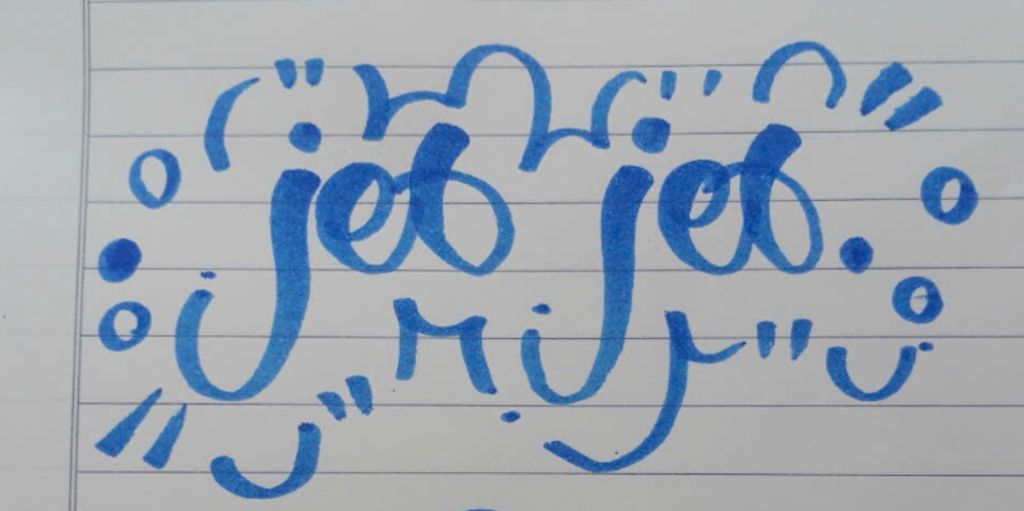 jeb jeb